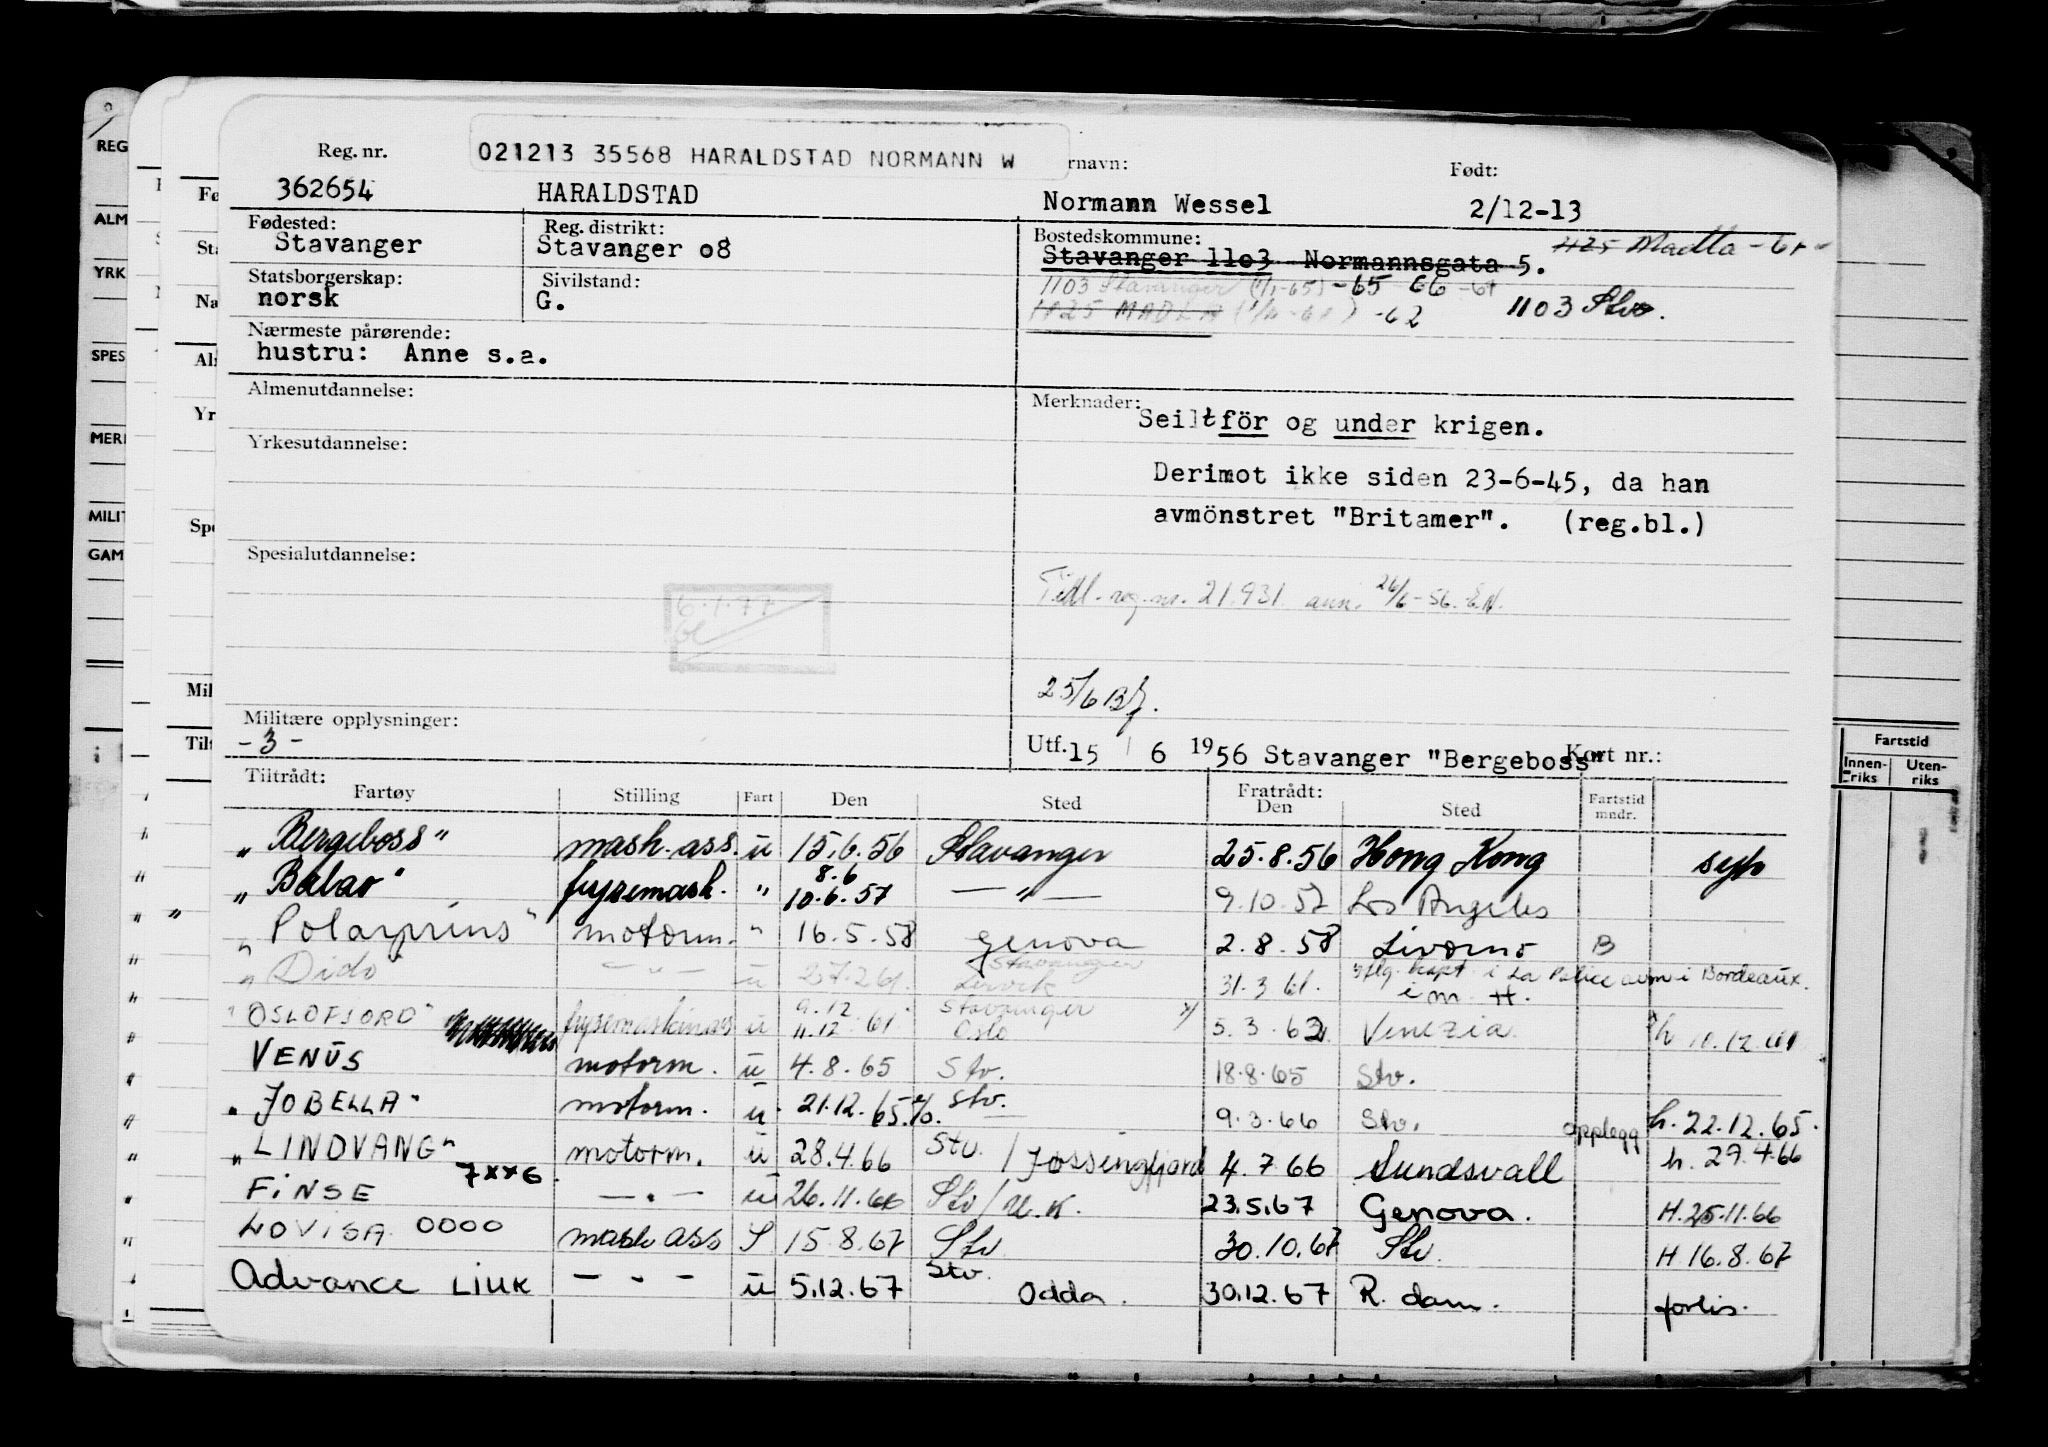 Reg. nr.
021213 35568 HARALDSTAD NORMANN W
rnavn:
Født:
362654
HARALDSTAD
Normann Wessel
2/12-13
Fødested:
Stavanger
Reg. distrikt:
Stavanger o8
Bostedskommune:
Stavanger 11o3 Normannsgata 5.
1125 Madla - 61
Statsborgerskap:
norsk
Sivilstand:
G.
1103 Stavanger (1/1-65) -65 66 -67
1125 MADLA -62
1103 Stv.
Nærmeste pårørende:
hustru: Anne s.a.
Almenutdannelse:
Merknader:
Seilt för og under krigen.
Yrkesutdannelse:
Derimot ikke siden 23-6-45, da han
avmönstret "Britamer". (reg.bl.)
Spesialutdannelse:
Tidl. reg. nr. 21.931 ann. 26/6-56. EN.
6.1.77
25/6 BJ.
Militære opplysninger:
- 3 -
Utf. 15 / 6 1956 Stavanger "Bergeboss"
Kort nr.:
Tiltrådt:
Fartøy Stilling Fart Den Sted
Fratrådt:
Den Sted
Fartstid
mndr.
"Bergeboss" mask. ass. u 15.6.56 Stavanger 25.8.56 Hong Kong syk
"Babar" frysemask. " 8.6
10.6.57 — " — 9.10.57 Los Angeles
"Polarprins" motorm. " 16.5.58 Genova 2.8.58 Livorno B
"Dido" — " — u 27.2.61. Stavanger
31.3.61. i La Police avm i Bordeaux.
i m. H.
"OSLOFJORD" frysemaskinass u 9.12
11.12.61 Stavanger
Oslo x) 5.3.62 Venezia. h 10.12.61
VENUS motorm. u 4.8.65 Stv. 18.8.65 Stv.
"JOBELLA" motorm. u 21.12.65 Stv. 9.3.66 Stv. opplegg h. 22.12.65.
"LINDVANG" motorm. u 28.4.66 Stv. / Jøssingfjord 4.7.66 Sundsvall h. 29.4.66
FINSE 7xx6 — " — u 26.11.66 Stv / U.K. 23.5.67 Genova. H. 25.11.66
LOVISA 0000 mask ass S 15.8.67 Stv 30.10.67 Stv. H 16.8.67
Advance LINK — " — u 5.12.67 Stv. Odda. 30.12.67 R. dam. forlis.
REG
ALM
YRK
SPES
MERI
MILIT
GAM
Fø
Sta
Na
Alm
Yr
Spe
Mil
Tilt
Fartstid
Innen-
riks
Uten-
riks